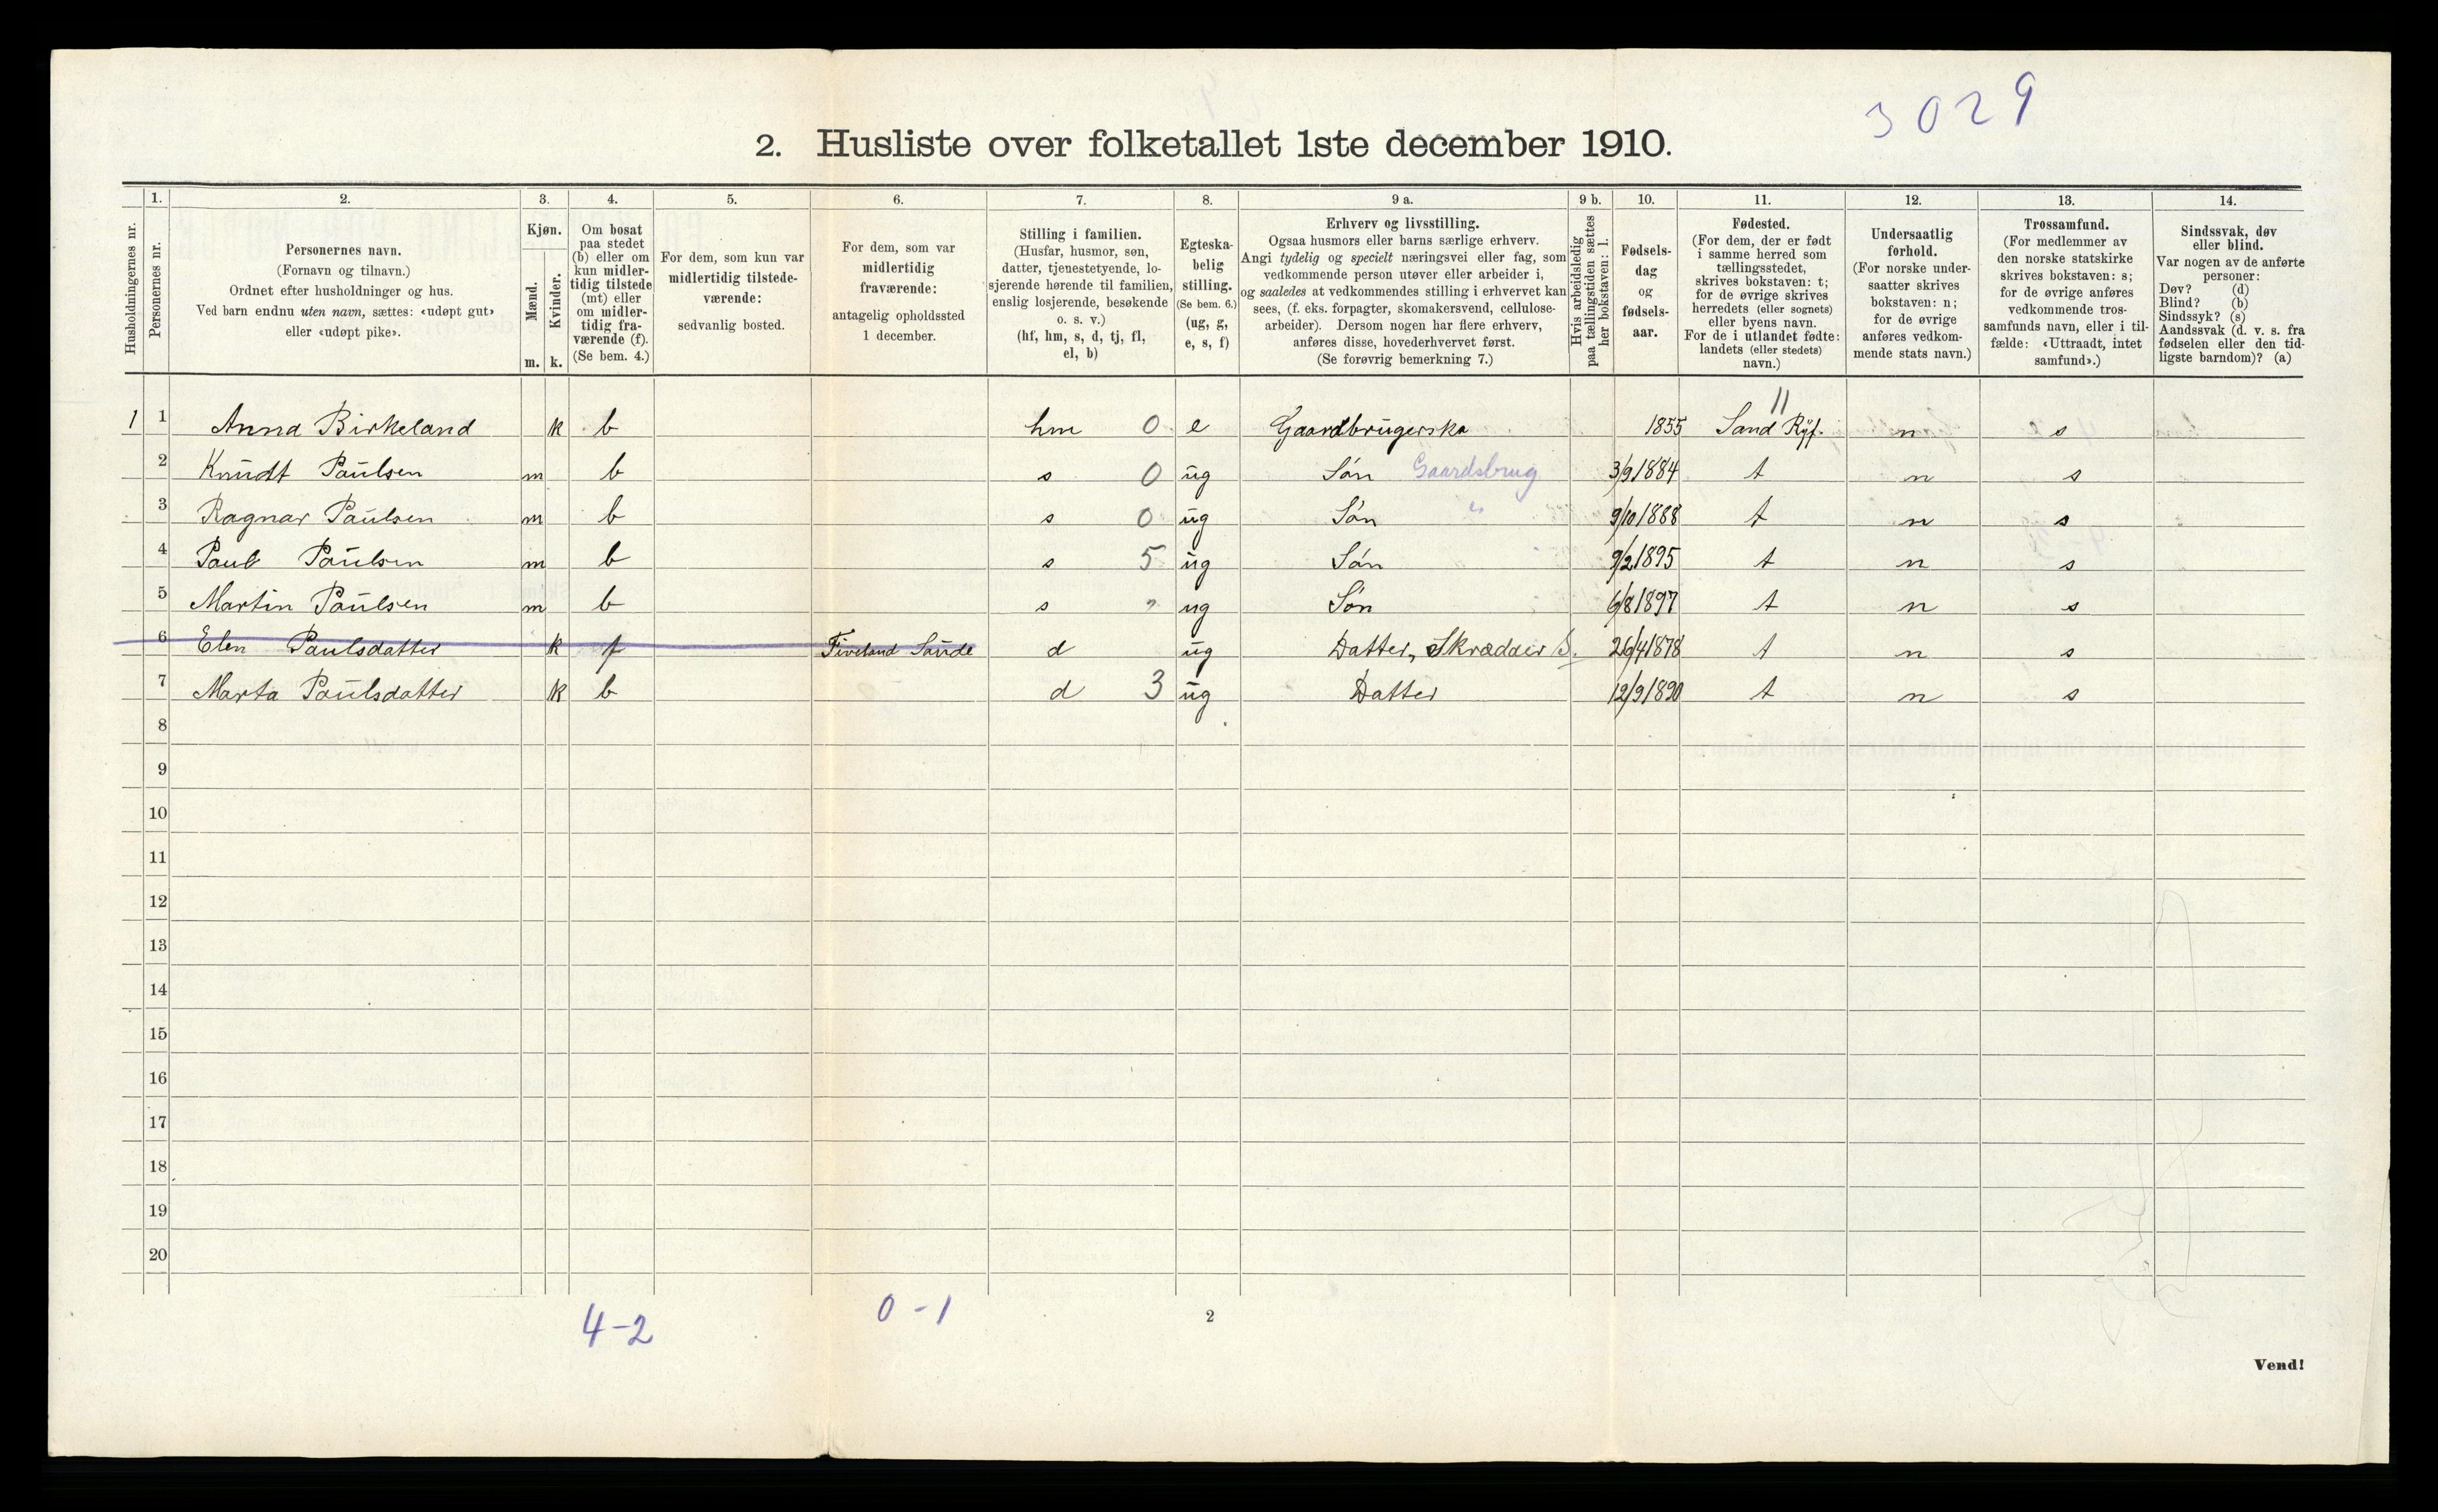 3029
2. Husliste over folketallet 1ste december 1910.
Husholdningernes nr.
1.
Personernes nr.
2.
Personernes navn.
(Fornavn og tilnavn.)
Ordnet efter husholdninger og hus.
Ved barn endnu uten navn, sættes: «udøpt gut»
eller «udøpt pike».
3.
Kjøn.
Mænd.
Kvinder.
m. k.
4.
Om bosat
paa stedet
(b) eller om
kun midler-
tidig tilstede
(mt) eller
om midler-
tidig fra-
værende (f).
(Se bem. 4.)
5.
For dem, som kun var
midlertidig tilstede-
værende:
sedvanlig bosted.
6.
For dem, som var
midlertidig
fraværende:
antagelig opholdssted
1 december.
7.
Stilling i familien.
(Husfar, husmor, søn,
datter, tjenestetyende, lo-
sjerende hørende til familien,
enslig losjerende, besøkende
o. s. v.)
(hf, hm, s, d, tj, fl,
el, b)
8.
Egteska-
belig
stilling.
(Se bem. 6.)
(ug, g,
e, s, f)
9 a.
Erhverv og livsstilling.
Ogsaa husmors eller barns særlige erhverv.
Angi tydelig og specielt næringsvei eller fag, som
vedkommende person utøver eller arbeider i,
og saaledes at vedkommendes stilling i erhvervet kan
sees, (f. eks. forpagter, skomakersvend, cellulose-
arbeider). Dersom nogen har flere erhverv,
anføres disse, hovederhvervet først.
(Se forøvrig bemerkning 7.)
9 b.
Hvis arbeidsledig
paa tællingstiden sættes
her bokstaven: l.
10.
Fødsels-
dag
og
fødsels-
aar.
11.
Fødested.
(For dem, der er født
i samme herred som
tællingsstedet,
skrives bokstaven: t;
for de øvrige skrives
herredets (eller sognets)
eller byens navn.
For de i utlandet fødte:
landets (eller stedets)
navn.)
12.
Undersaatlig
forhold.
(For norske under-
saatter skrives
bokstaven: n;
for de øvrige
anføres vedkom-
mende stats navn.)
13.
Trossamfund.
(For medlemmer av
den norske statskirke
skrives bokstaven: s;
for de øvrige anføres
vedkommende tros-
samfunds navn, eller i til-
fælde: «Uttraadt, intet
samfund».)
14.
Sindssvak, døv
eller blind.
Var nogen av de anførte
personer:
Døv? (d)
Blind? (b)
Sindssyk? (s)
Aandssvak (d. v. s. fra
fødselen eller den tid-
ligste barndom)? (a)
11
1 1 Anna Birkeland k b hm 0 e Gaardbrugerska 1855 Sand Ryf. n s
2 Knudt Paulsen m b s 0 ug Søn Gaardsbrug 3/9 1884 t n s
3 Ragnar Paulsen m b s 0 ug Søn " 9/10 1888 t n s
4 Paul Paulsen m b s 5 ug Søn 9/2 1895 t n s
5 Martin Paulsen m b s " ug Søn 6/8 1897 t n s
6 Elen Paulsdatter k f Fiveland Saude d ug Datter, Skrædder S. 26/4 1878 t n s
7 Marta Paulsdatter k b d 3 ug Datter 12/9 1890 t n s
8
9
10
11
12
13
14
15
16
17
18
19
20
4-2
0-1
2
Vend!